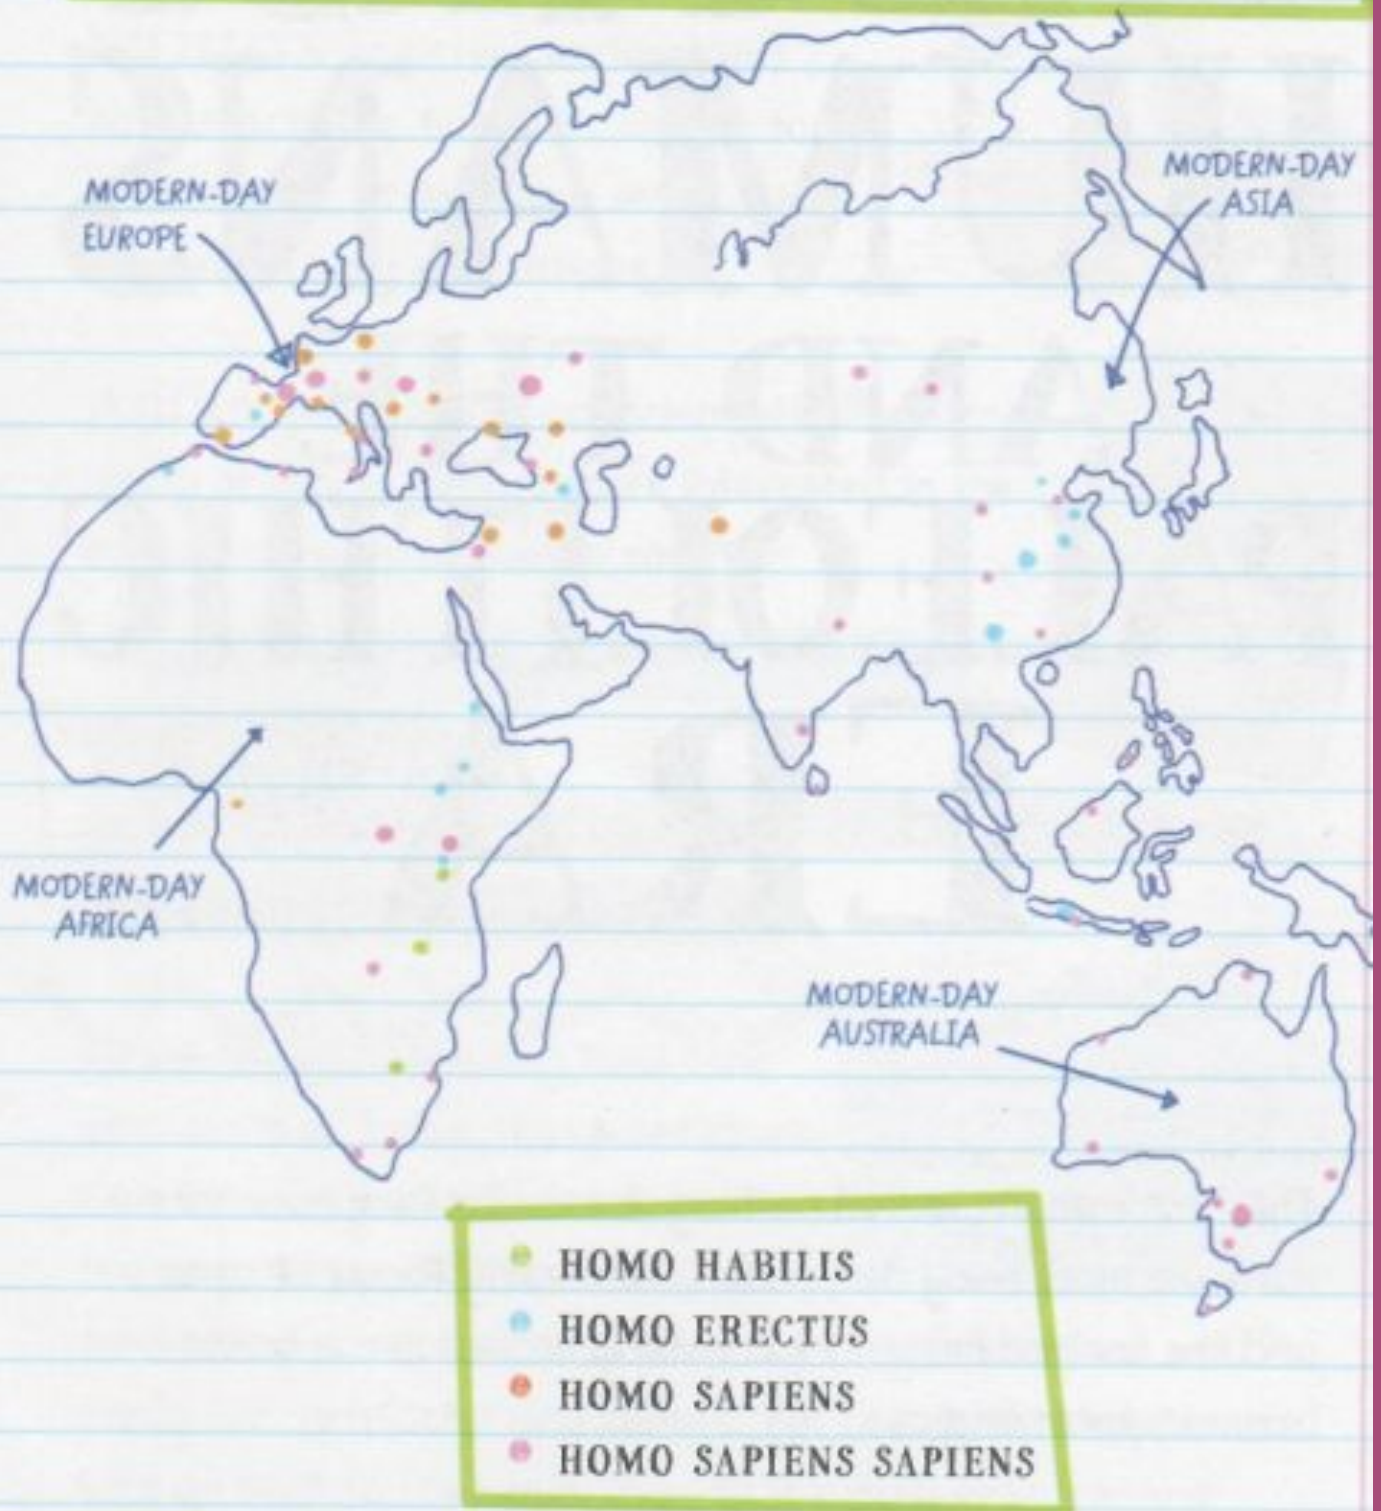 MODERN-DAY
EUROPE
MODERN-DAY
ASIA
MODERN-DAY
AFRICA
MODERN-DAY
AUSTRALIA
HOMO HABILIS
HOMO ERECTUS
HOMO SAPIENS
HOMO SAPIENS SAPIENS